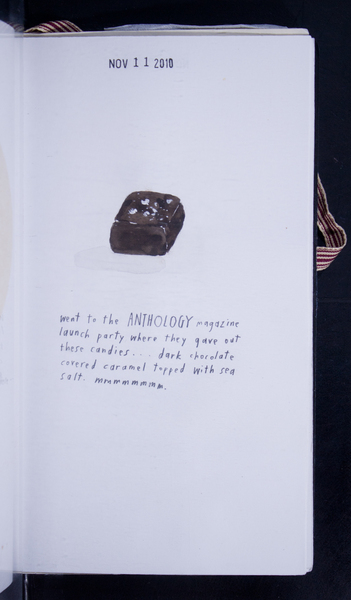 NOV 11 2010
went to the ANTHOLOGY magazine
launch party where they gave out
these candies... dark chocolate
covered caramel topped with sea
salt. mmmmmmmm.